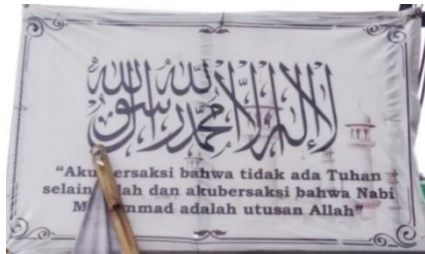 لا إله إلا الله محمد رسول الله
"Akubersaksi bahwa tidak ada Tuhan
selain Allah dan akubersaksi bahwa Nabi
Muhammad adalah utusan Allah"